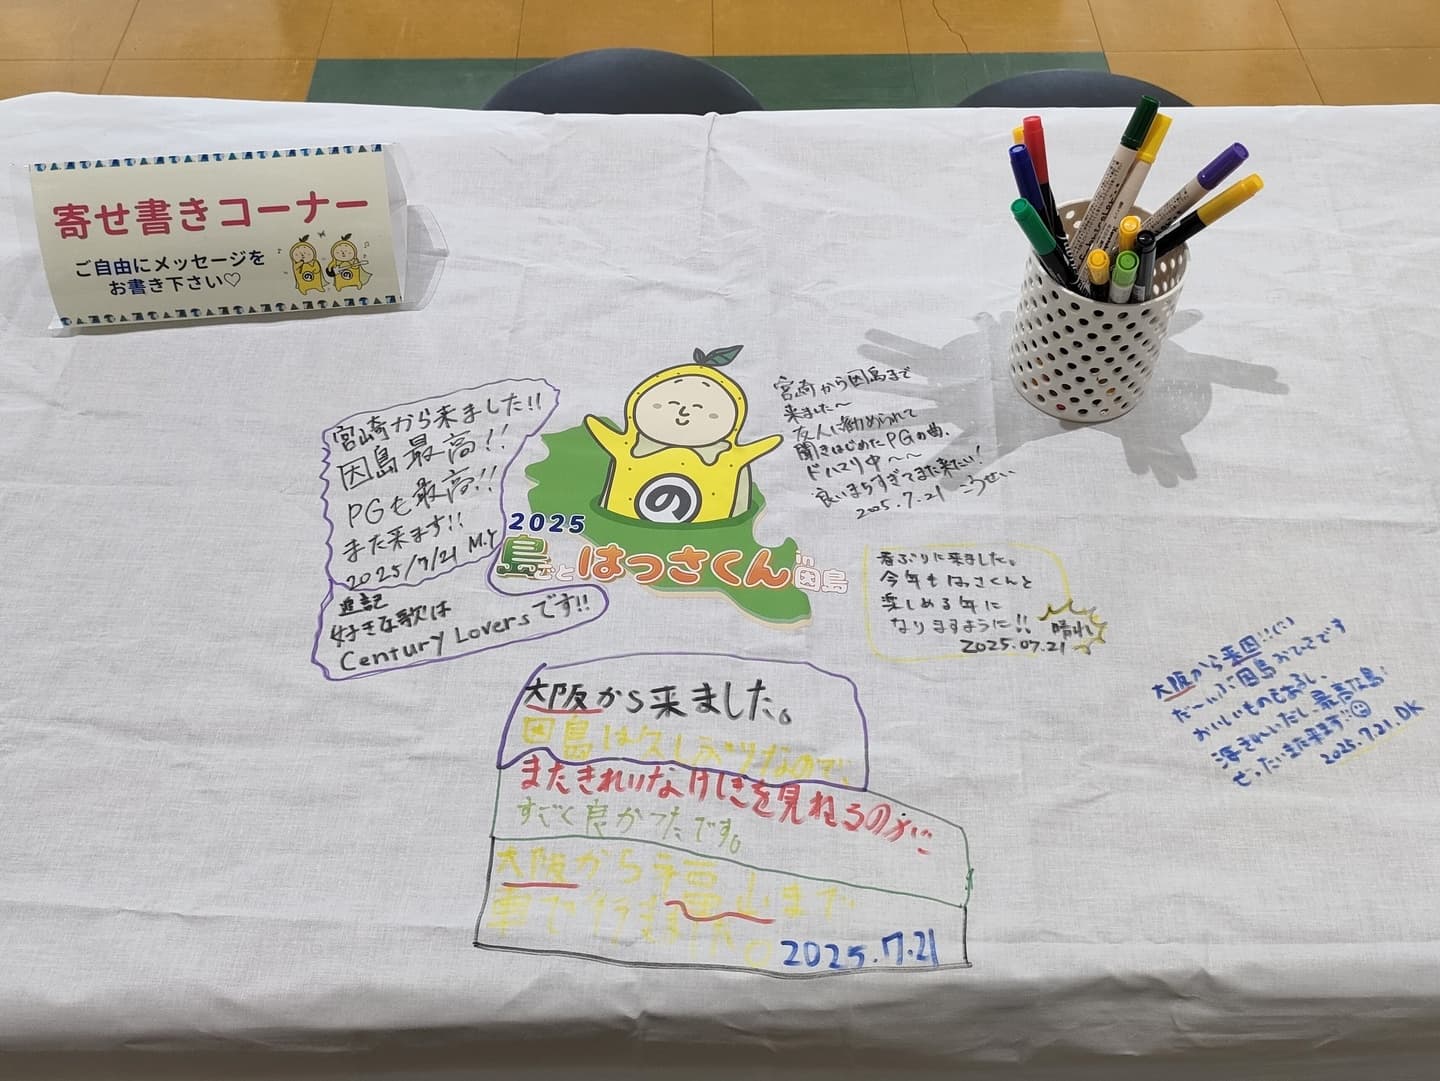 寄せ書きコーナー
ご自由にメッセージを
お書き下さい♡
宮崎から来ました!!
因島最高!!
PGも最高!!
また来ます!!
2025/7/21 M.Y
追記
好きな歌は
Century Loversです!!
の
2025
島ごとはっさくんin因島
宮崎から因島まで
来ました〜
友人に勧められて
聞きはじめたPGの曲、
ドハマリ中〜〜
良いまちすぎてまた来たい!
2025.7.21 こうせい
春ぶりに来ました。
今年もはっさくんと
楽しめる年に
なりますように!!
晴れ
2025.07.21
大阪から来ました。
因島は久しぶりなので、
またきれいなけしきを見れるのが
すごく良かったです。
大阪から福山まで
車で行きました。
2025.7.21
大阪から来因!!
だーいぶ因島おひさです
おいしいものもあるし、
海きれいだし最高な島!
ぜったいまた来ます!
2025.7.21.DK